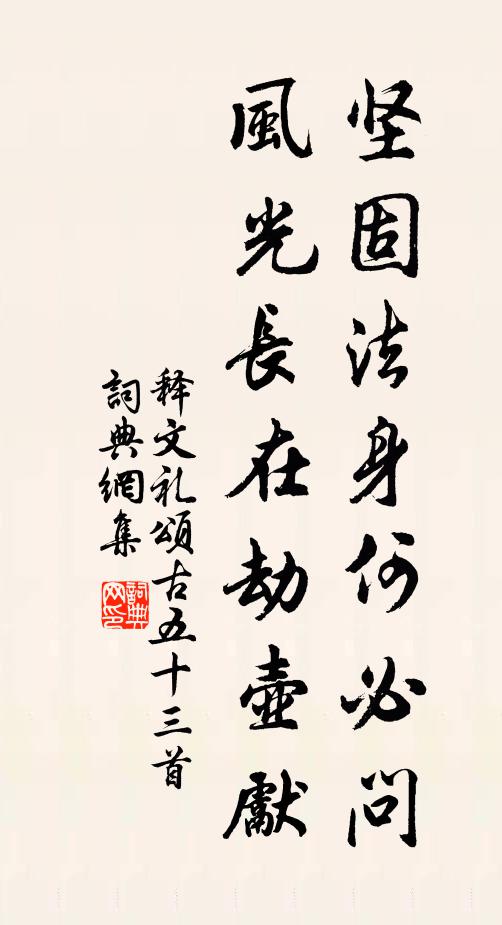 坚固法身何必问
風光長在劫壷獻
释文礼頌古五十三首
詞典網集
詞典网印